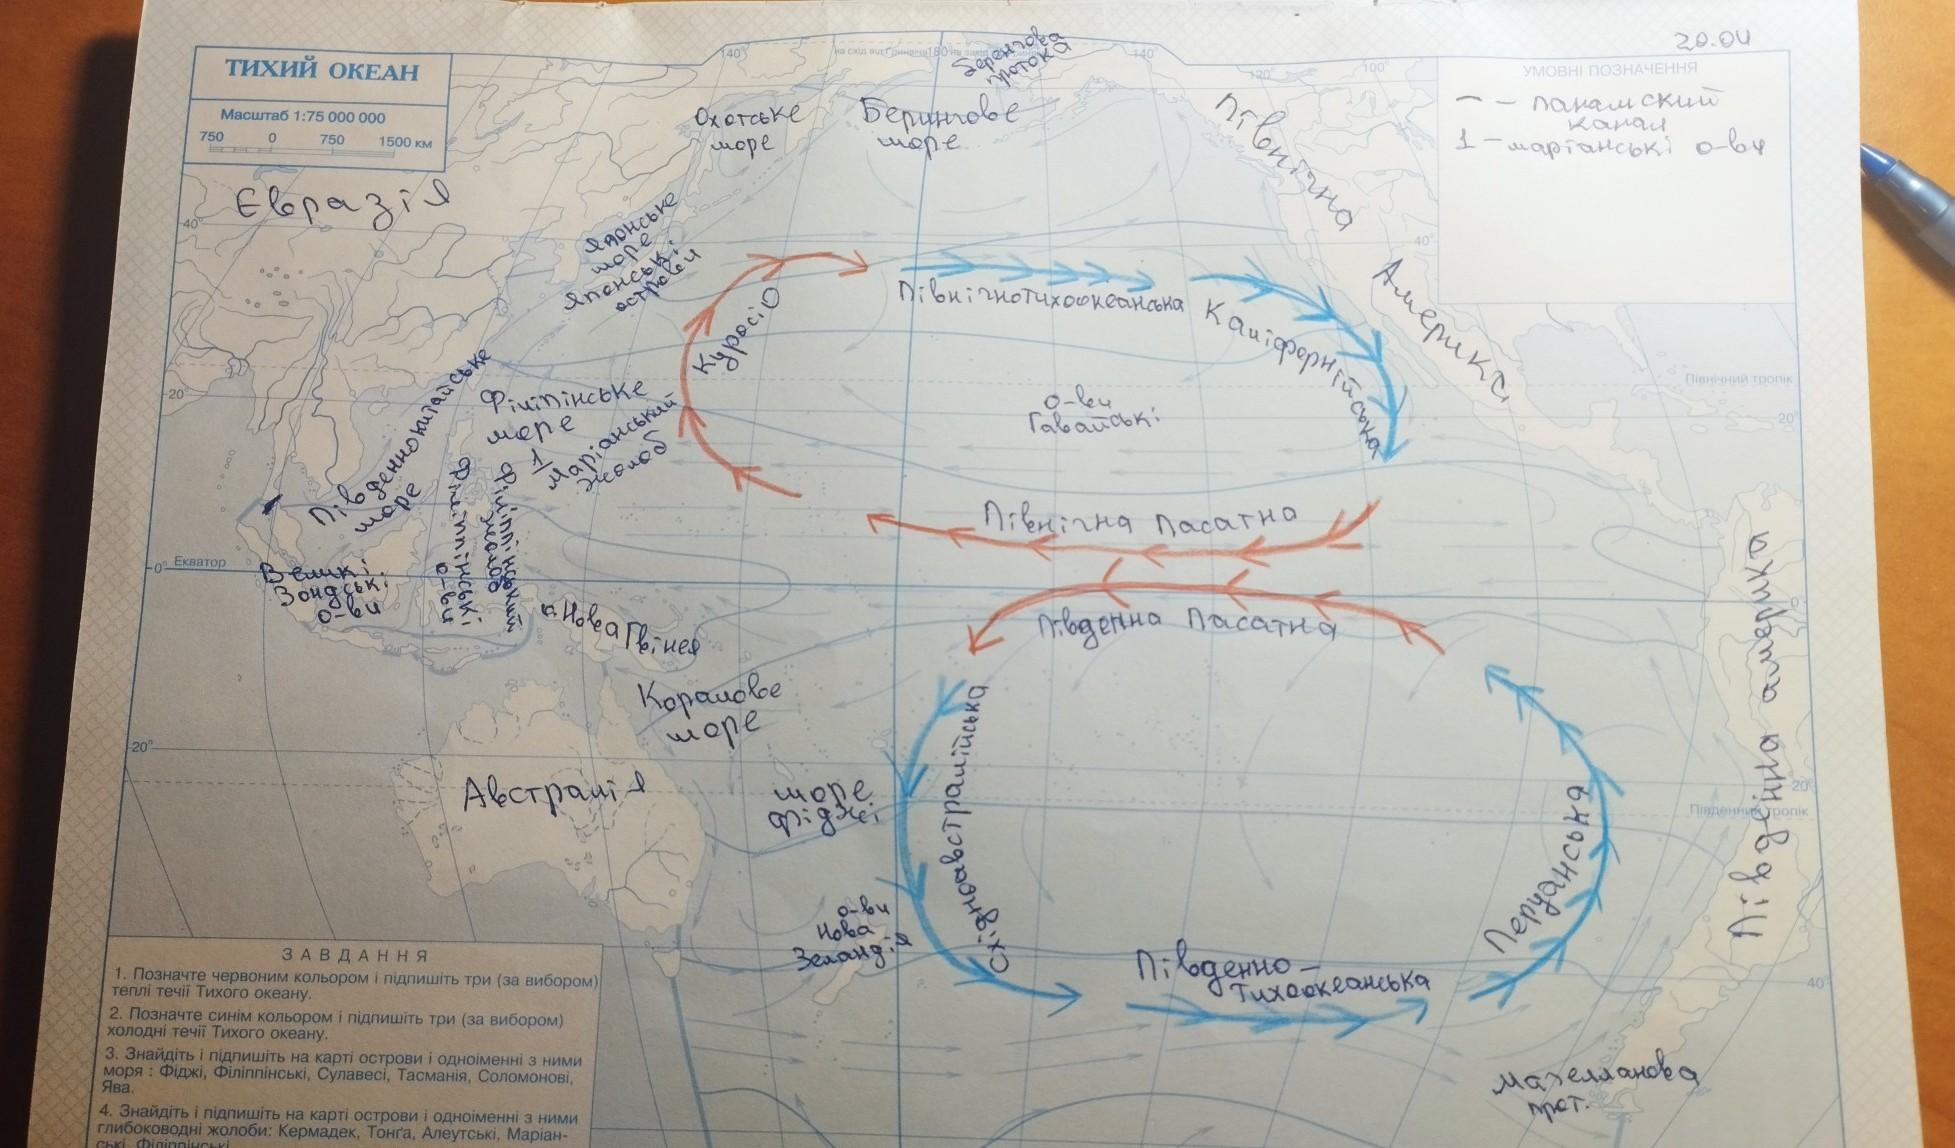 20.04
ТИХИЙ ОКЕАН
Масштаб 1:75 000 000
750 0 750 1500 км
140°
на схід від Гринвіча 180 на захід
140°
120°
100°
УМОВНІ ПОЗНАЧЕННЯ
— – панамский
канал
1 – маріанські о-ви
Беренгова
протока
Охотське
море
Берингове
море
Північна
Америка
Євразія
40°
40°
Японське
море
Японські
острови
Куросіо
Північнотихоокеанська
Каліфорнійська
20°
Північний тропік
20°
Південнокитайське
море
Філіпінське
море
1
Маріанський
жолоб
о-ви
Гавайські
Філіппінські
о-ви
Філіппінський
жолоб
Північна Пасатна
0° Екватор
0°
Великі
Зондські
о-ви
о. Нова Гвінея
Південна Пасатна
Південна америка
Коралове
море
20°
Австралія
море
Фіджі
Східноавстралійська
Перуанська
20°
Південний тропік
о-ви
Нова
Зеландія
Південно-
тихоокеанська
40°
Магелланова
прот.
ЗАВДАННЯ
1. Позначте червоним кольором і підпишіть три (за вибором)
теплі течії Тихого океану.
2. Позначте синім кольором і підпишіть три (за вибором)
холодні течії Тихого океану.
3. Знайдіть і підпишіть на карті острови і одноіменні з ними
моря : Фіджі, Філіппінські, Сулавесі, Тасманія, Соломонові,
Ява.
4. Знайдіть і підпишіть на карті острови і одноіменні з ними
глибоководні жолоби: Кермадек, Тонґа, Алеутські, Маріан-
ські, Філіппінські